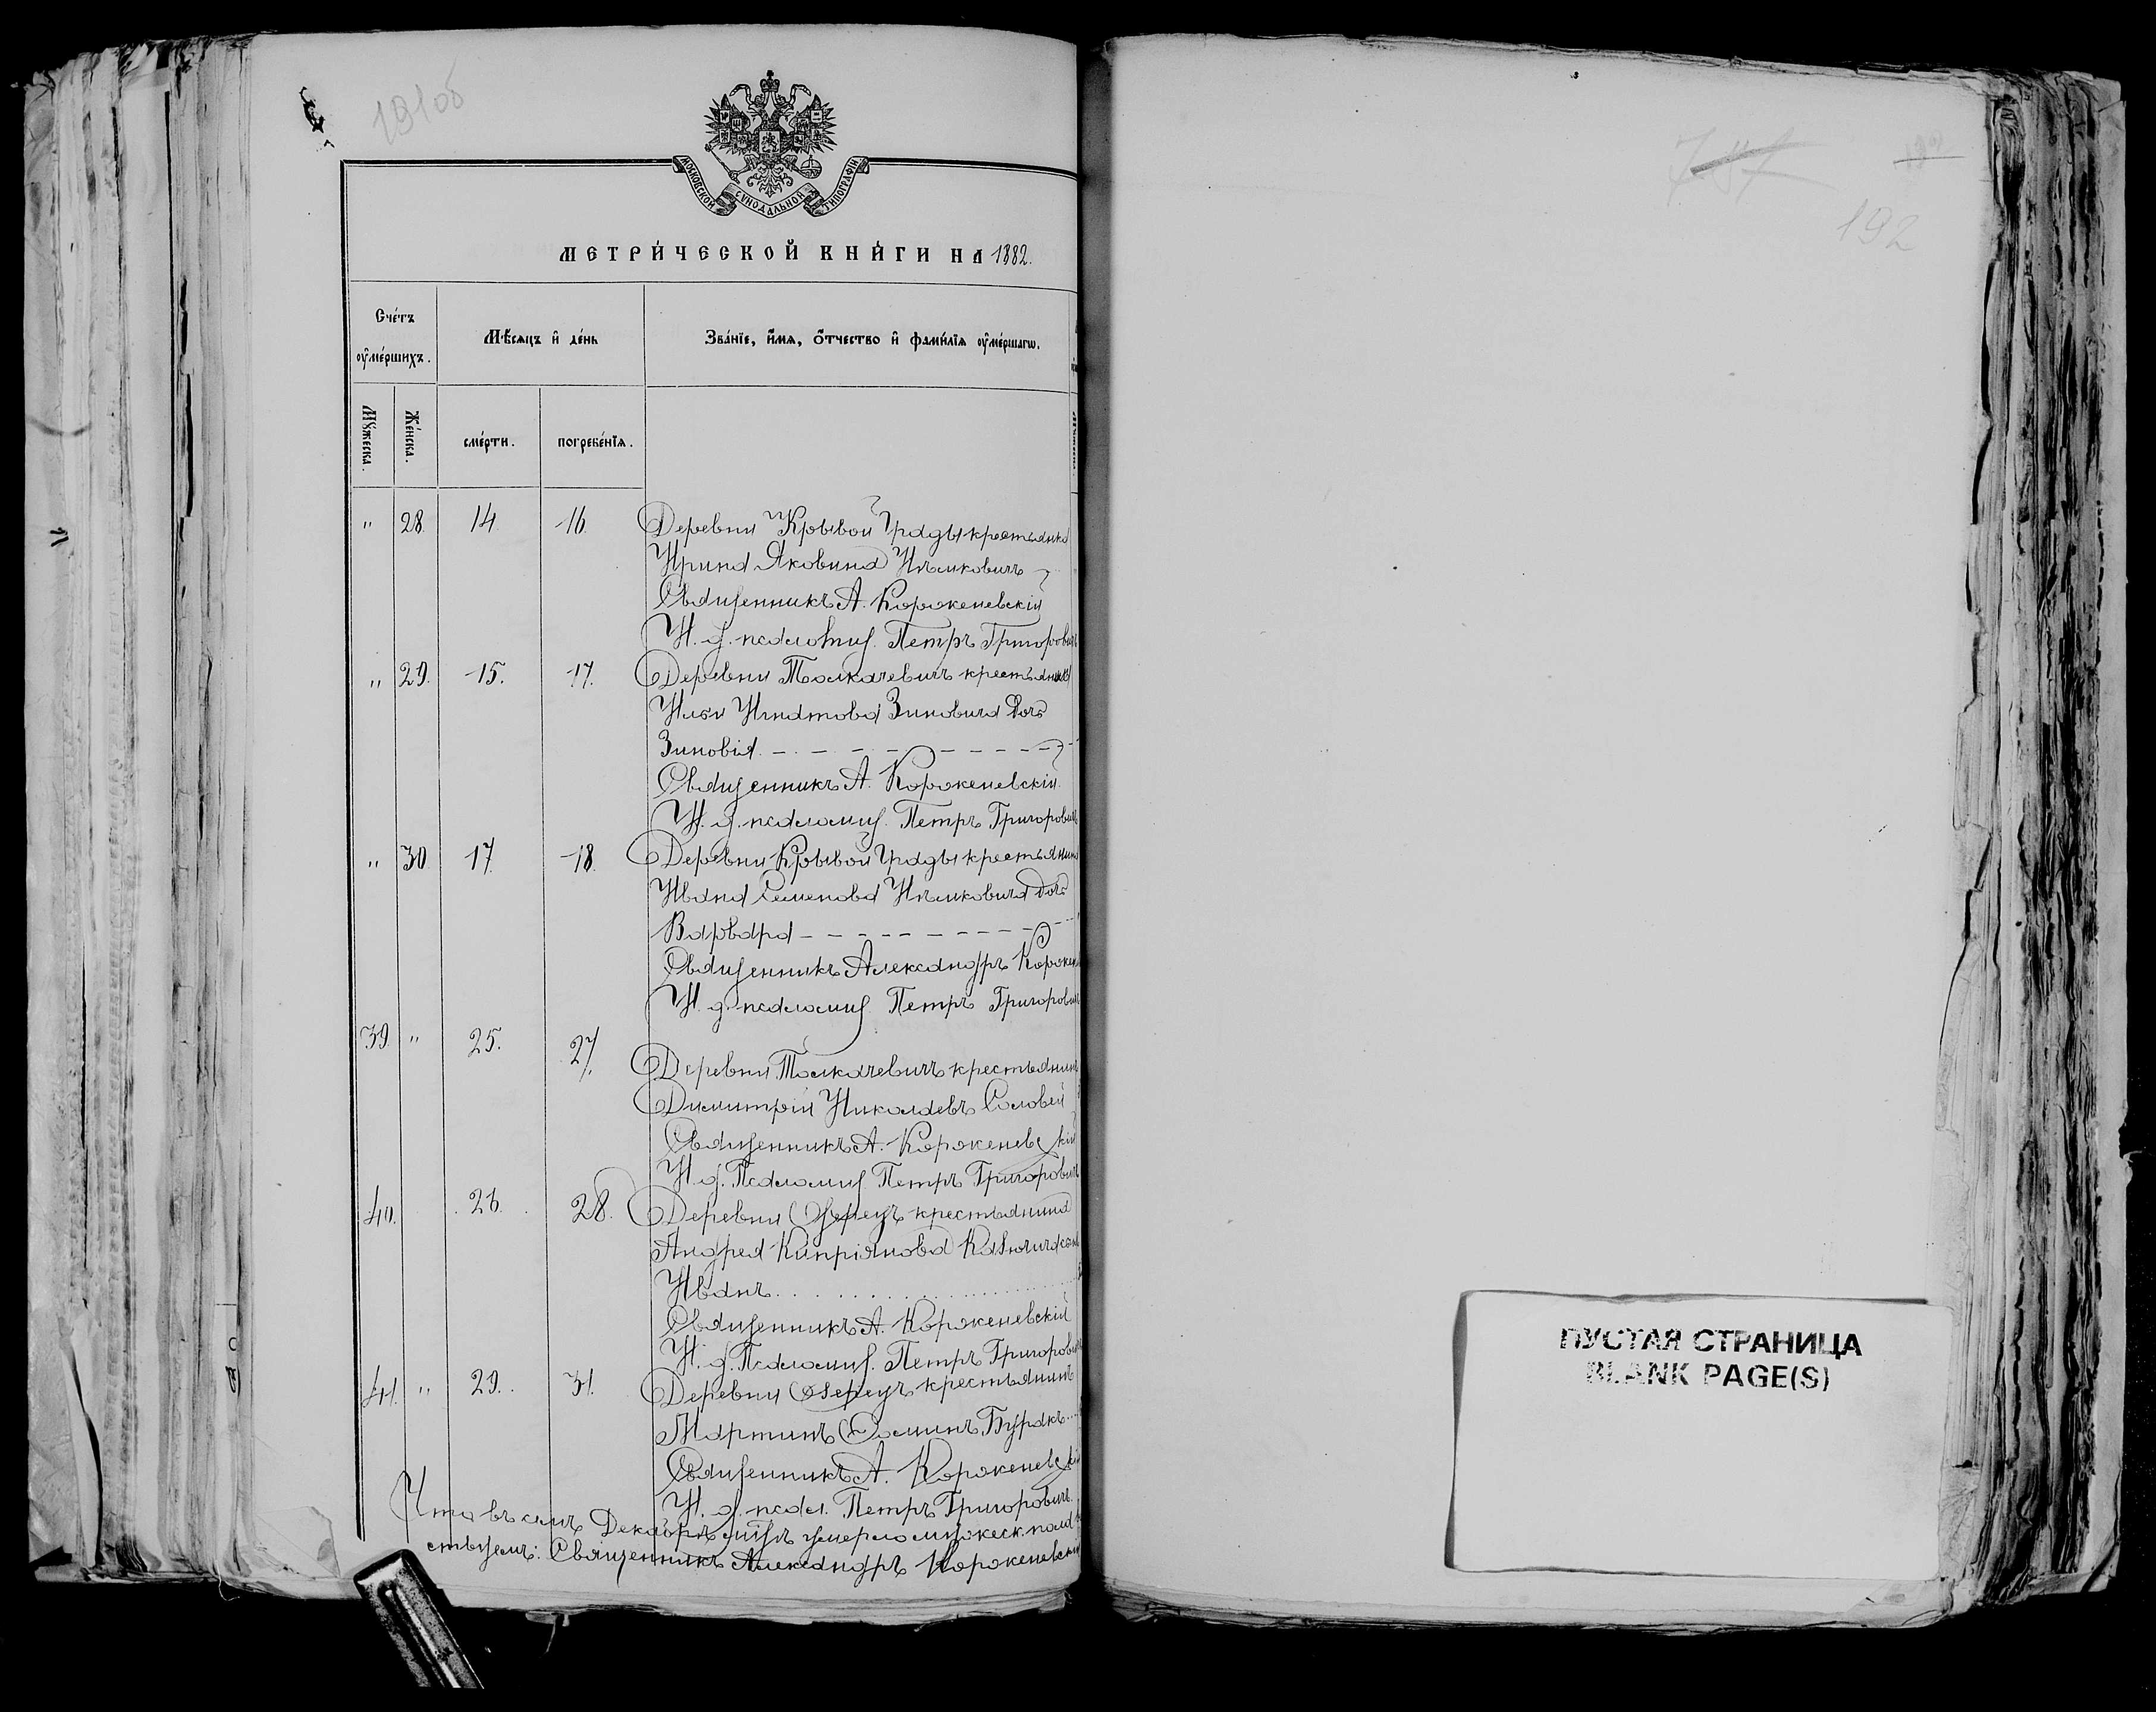 191об
МОСКОВСКОЙ СѴНОДАЛЬНОЙ ТИПОГРАФІИ
МЕТРИ́ЧЕСКОЙ КНИ́ГИ НА 1882.
Сче́тъ оу҆ме́ршихъ.
Мѣ́сяцъ и҆ де́нь
Зва́нїе, и҆́мя, ѻ҆́тчество и҆ фами́лїя оу҆ме́ршагѡ.
Му́жеска.
Же́нска.
сме́рти.
погребе́нїя.
" 28. 14 16. Деревни Кривой Гряды крестьянка
Ирина Яковина Нѣмковичъ
Священникъ А. Корженевскій
И. д. псаломщ. Петръ Григоровичъ
" 29. 15. 17. Деревни Толкачевичъ крестьянина
Ильи Игнатова Зиновича дочь
Зиновія
Священникъ А. Корженевскій
И. д. псаломщ. Петръ Григоровичъ
" 30 17. 18. Деревни Кривой Гряды крестьянина
Ивана Семенова Нѣмковича дочь
Варвара
Священникъ Александръ Коржен
И. д. псаломщ. Петръ Григорович
39. " 25. 27. Деревни Толкачевичъ крестьянинъ
Димитрій Николаевъ Соловей
Священникъ А. Корженевскій
И. д. Псаломщ. Петръ Григоровичъ
40. 26. 28. Деревни Озерецъ крестьянина
Андрея Кипріянова сынъ
Иванъ
Священникъ А. Корженевскій
И. д. Псаломщ. Петръ Григорович
41. " 29. 31. Деревни Озерецъ крестьянинъ
Мартинъ Ѳоминъ Буракъ
Священникъ А. Корженевскій
И. д. псал. Петръ Григоровичъ.
Что въ семъ Декабрѣ умерло мужеск. пола
Священникъ Александръ Корженевскій
192
ПУСТАЯ СТРАНИЦА
BLANK PAGE(S)